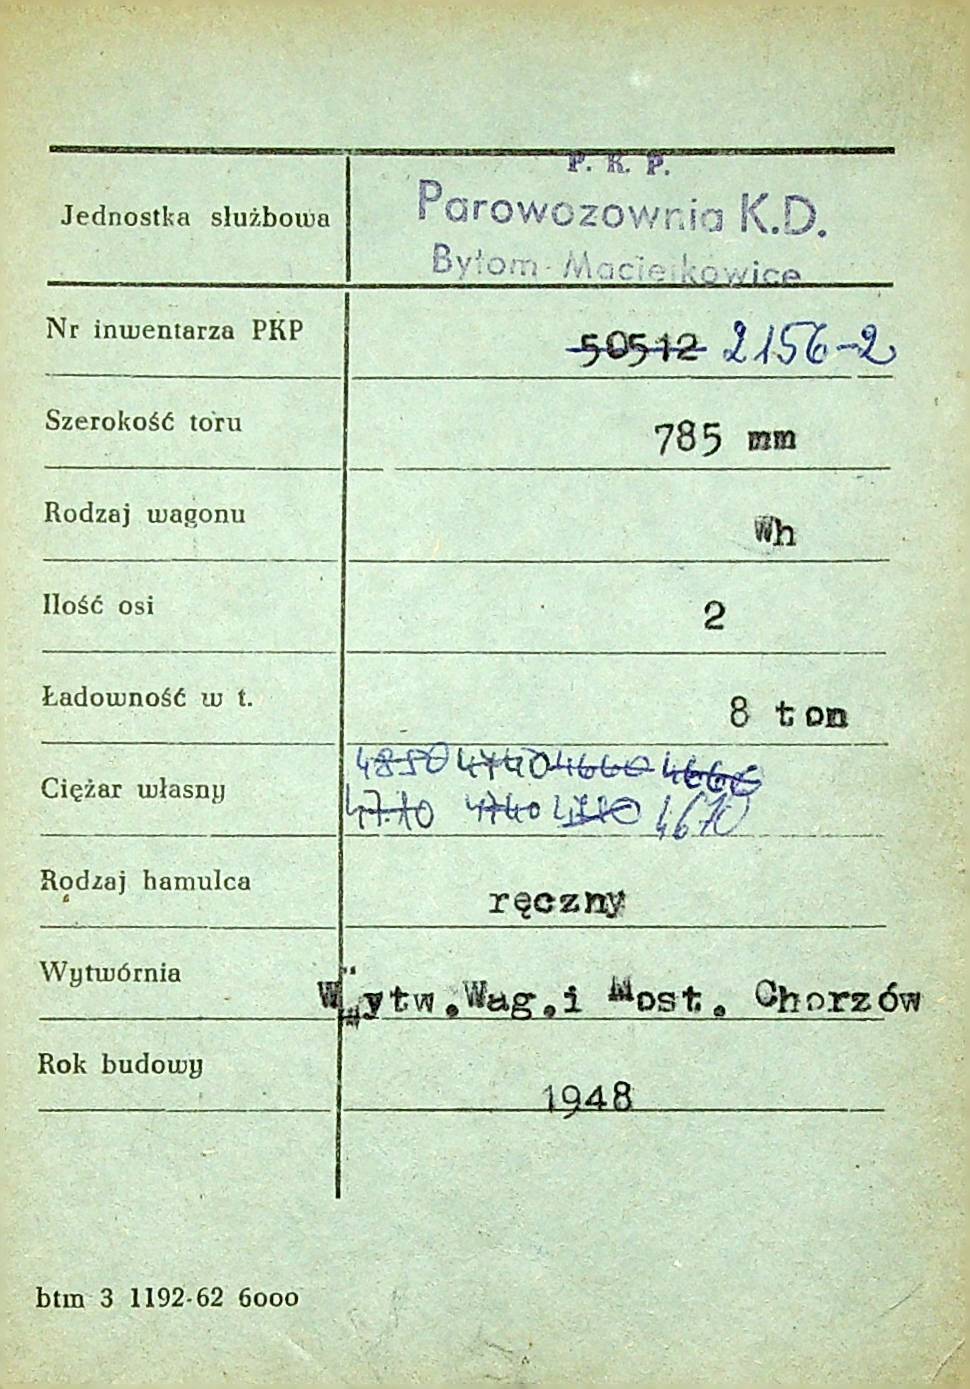 P. K. P.
Jednostka służbowa Parowozownia K.D.
Bytom-Maciejkowice
Nr inwentarza PKP 50512 2156-2
Szerokość toru 785 mm
Rodzaj wagonu Wh
Ilość osi 2
Ładowność w t. 8 ton
4850 4740 4660 4660
Ciężar własny 4710 4740 4670
Rodzaj hamulca ręczny
Wytwórnia Wytw.Wag.i Most. Chorzów
Rok budowy 1948
btm 3 1192-62 6000